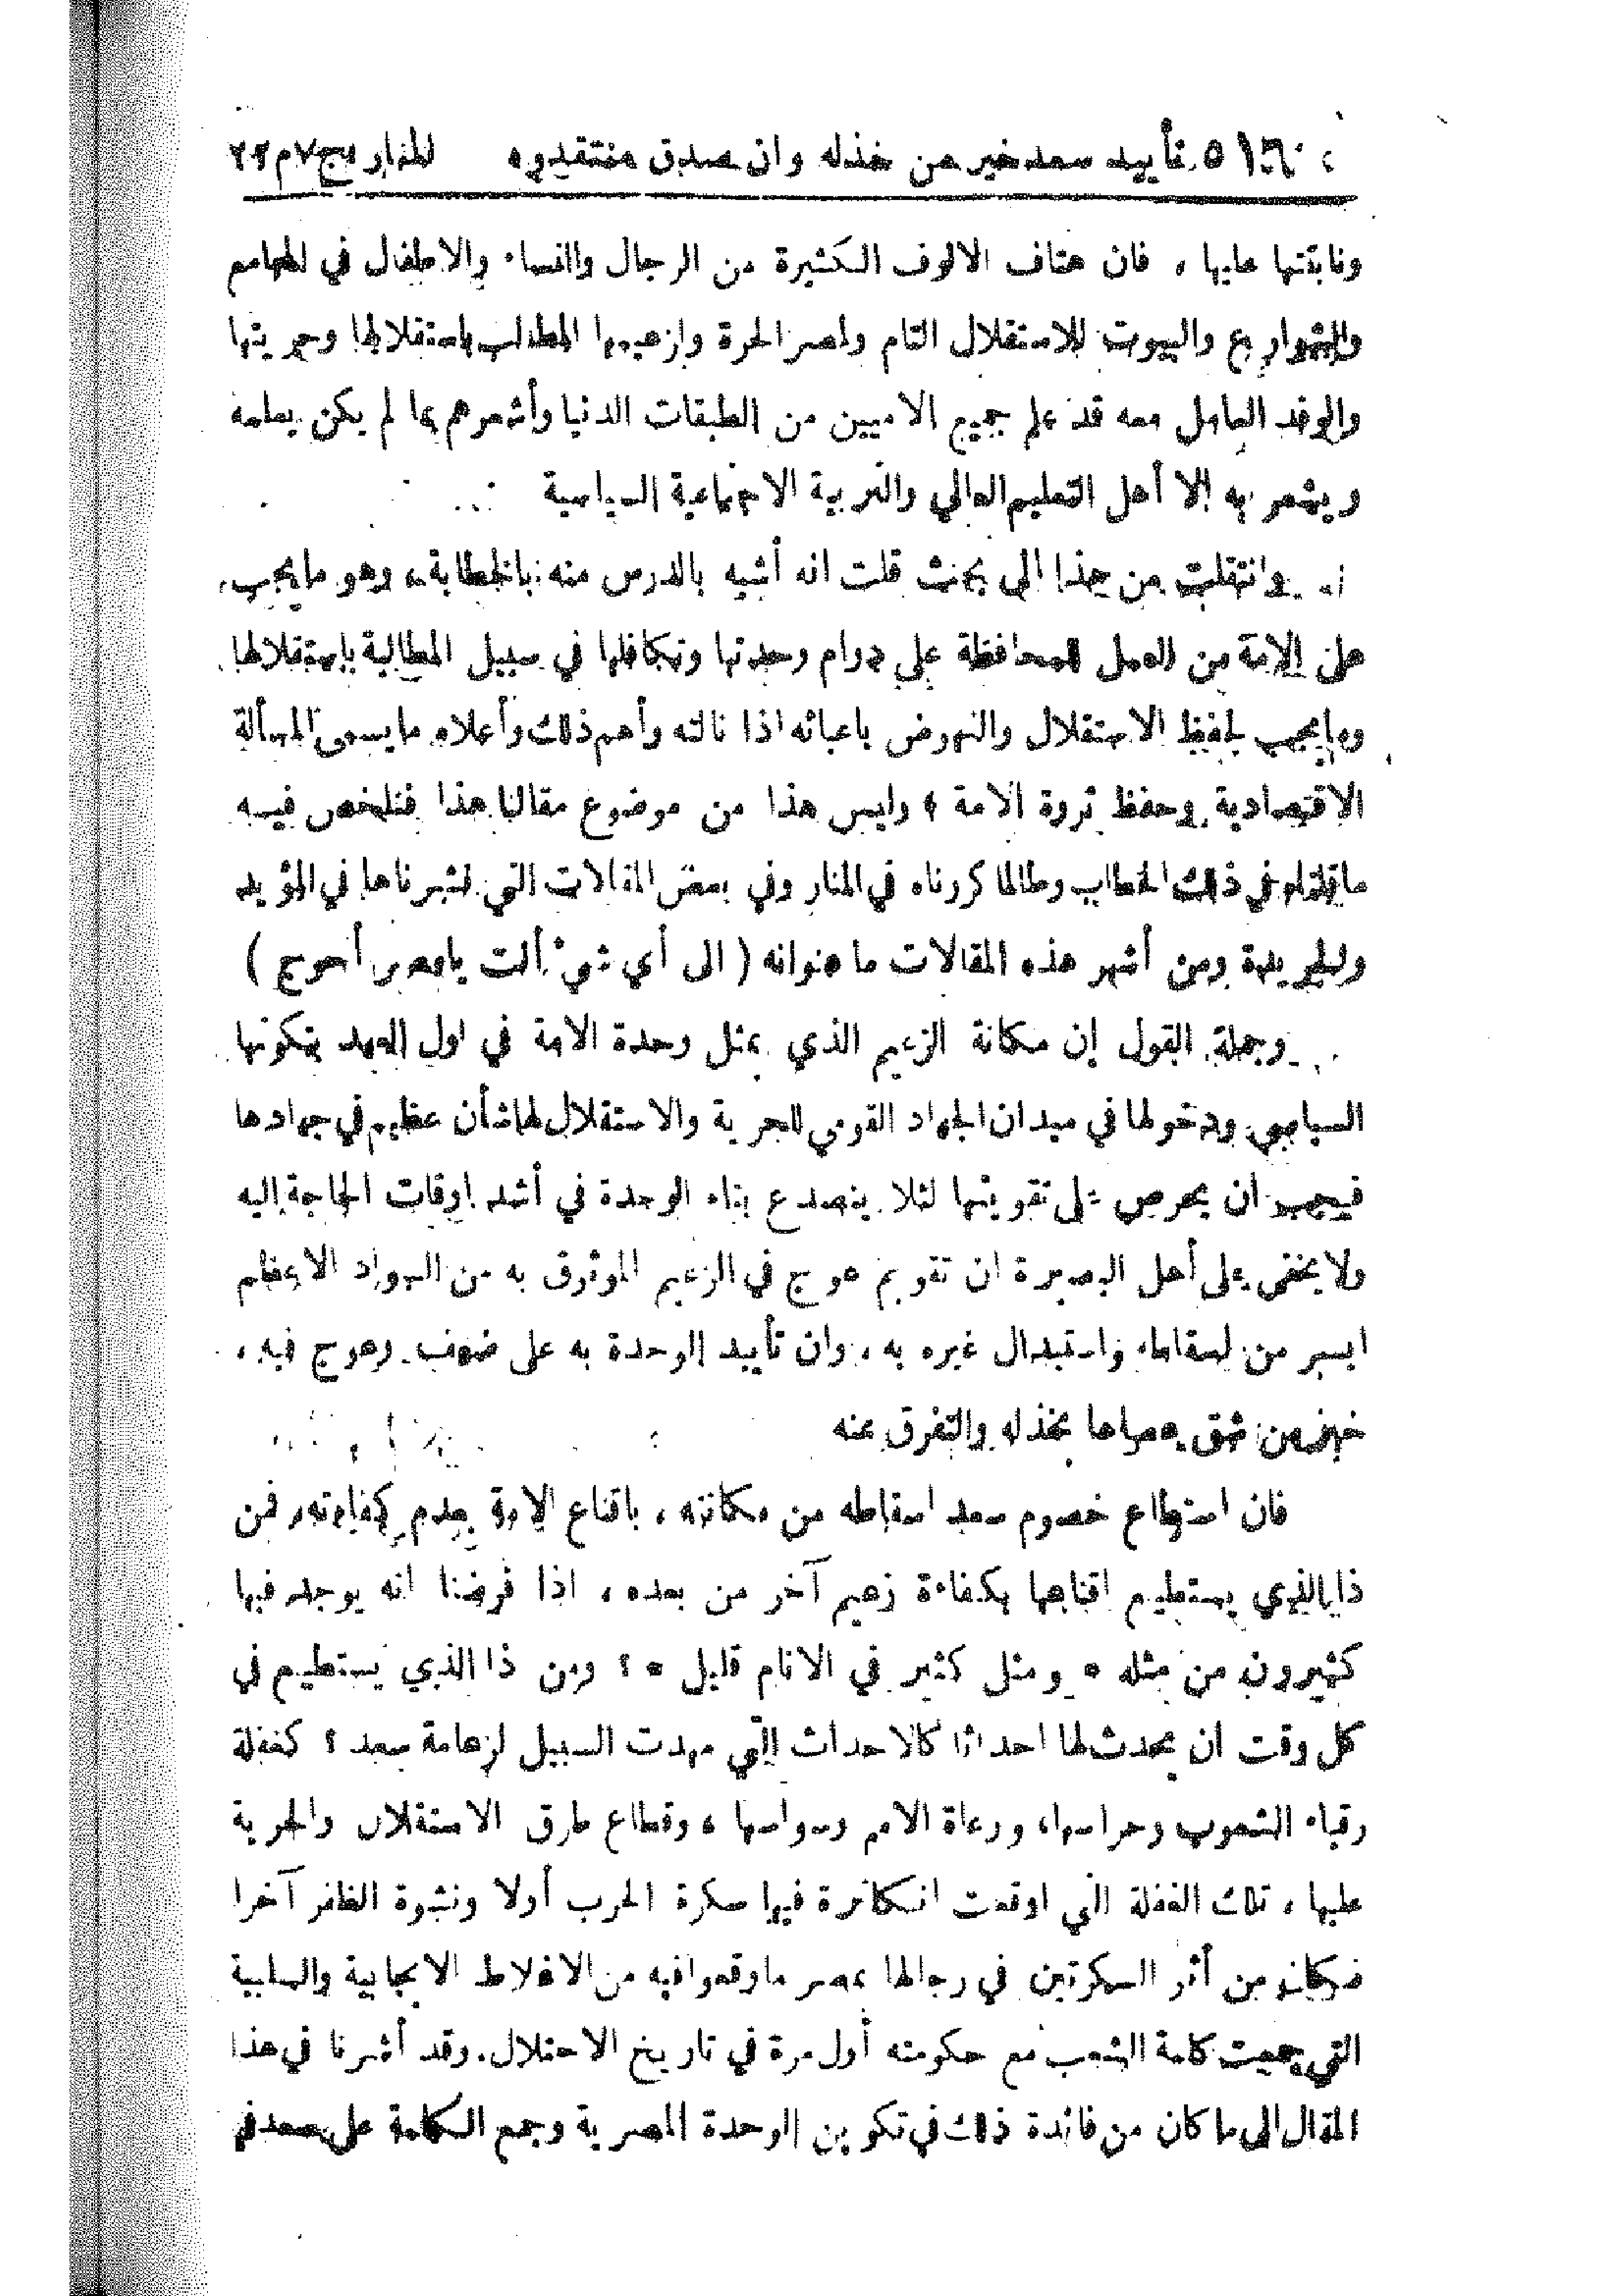 ٥١٦ تأييد سعد خير من خذله وان صدق منتقدوه المنار : ج ٧ م ٢٢
ونابتتها عليها ، فان هتاف الالوف الكثيرة من الرجال والنساء والاطفال في المجامع
والشوارع والبيوت للاستقلال التام ولمصر الحرة ولزعيمها المطالب باستقلالها وحريتها
والوفد العامل معه قد علم جميع الاميين من الطبقات الدنيا وأشعرهم بما لم يكن يعلمه
ويشعر به إلا أهل التعليم العالي والتربية الاجتماعية السياسية
وانتقلت من هذا الى بحث قلت انه أشبه بالدرس منه بالخطابة ، وهو ما يجب
على الامة من العمل للمحافظة على دوام وحدتها وتكافلها في سبيل المطالبة باستقلالها
وما يجب لحفظ الاستقلال والنهوض باعبائه اذا نالته وأهم ذلك وأعلاه ما يسمى المسألة
الاقتصادية وحفظ ثروة الامة ، وليس هذا من موضوع مقالنا هذا فنلخص فيه
ما قلناه في ذلك الخطاب وطالما كررناه في المنار وفي بعض المقالات التي نشرناها في المؤيد
والجريدة ومن أشهر هذه المقالات ما عنوانه ( الى أي شيء أنت يا مصر أحوج )
وجملة القول إن مكانة الزعيم الذي يمثل وحدة الامة في اول العهد بتكونها
السياسي ودخولها في ميدان الجهاد القومي للحرية والاستقلال لها شأن عظيم في جهادها
فيجب ان يحرص على تقويتها لئلا ينصدع بناء الوحدة في أشد اوقات الحاجة إليه
ولا يخفى على أهل البصيرة ان تقويم عوج في الزعيم الموثوق به من السواد الاعظم
ايسر من اسقاطه واستبدال غيره به ، وان تأييد الوحدة به على ضعف وعوج فيه ،
خير من شق عصاها بخذله والتفرق عنه
فان استطاع خصوم سعد اسقاطه من مكانته ، باقناع الامة بعدم كفاءته ، فمن
ذا الذي يستطيع اقناعها بكفاءة زعيم آخر من بعده ، اذا فرضنا انه يوجد فيها
كثيرون من مثله « ومثل كثير في الانام قليل » ؟ ومن ذا الذي يستطيع في
كل وقت ان يحدث لها احداثا كالاحداث التي مهدت السبيل لزعامة سعد ؟ كغفلة
رقباء الشعوب وحراسها ، ورعاة الامم وسواسها ، وقطاع طرق الاستقلال والحرية
عليها ، تلك الغفلة التي اوقعت انكلترة فيها سكرة الحرب أولا ونشوة الظفر آخرا
فكان من أثر السكرتين في رجالها بمصر ما وقعوا فيه من الاغلاط الايجابية والسلبية
التي جمعت كلمة الشعب مع حكومته أول مرة في تاريخ الاحتلال . وقد أشرنا في هذا
المقال الى ما كان من فائدة ذلك في تكوين الوحدة المصرية وجمع الكلمة على سعد في